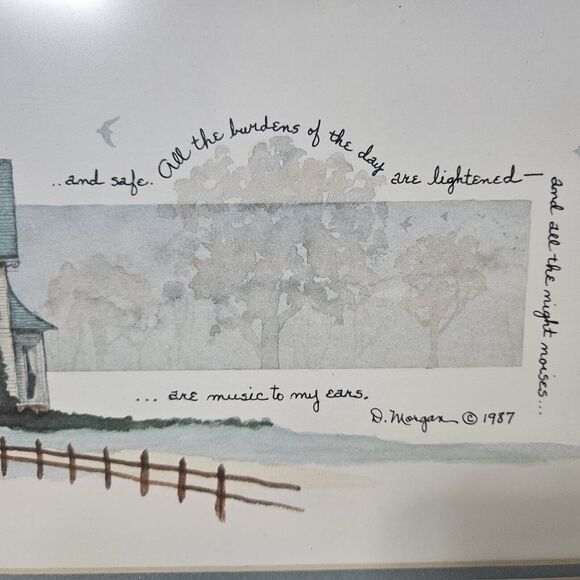 ..and safe. All the burdens of the day are lightened—
and all the night noises...
... are music to my ears.
D. Morgan © 1987